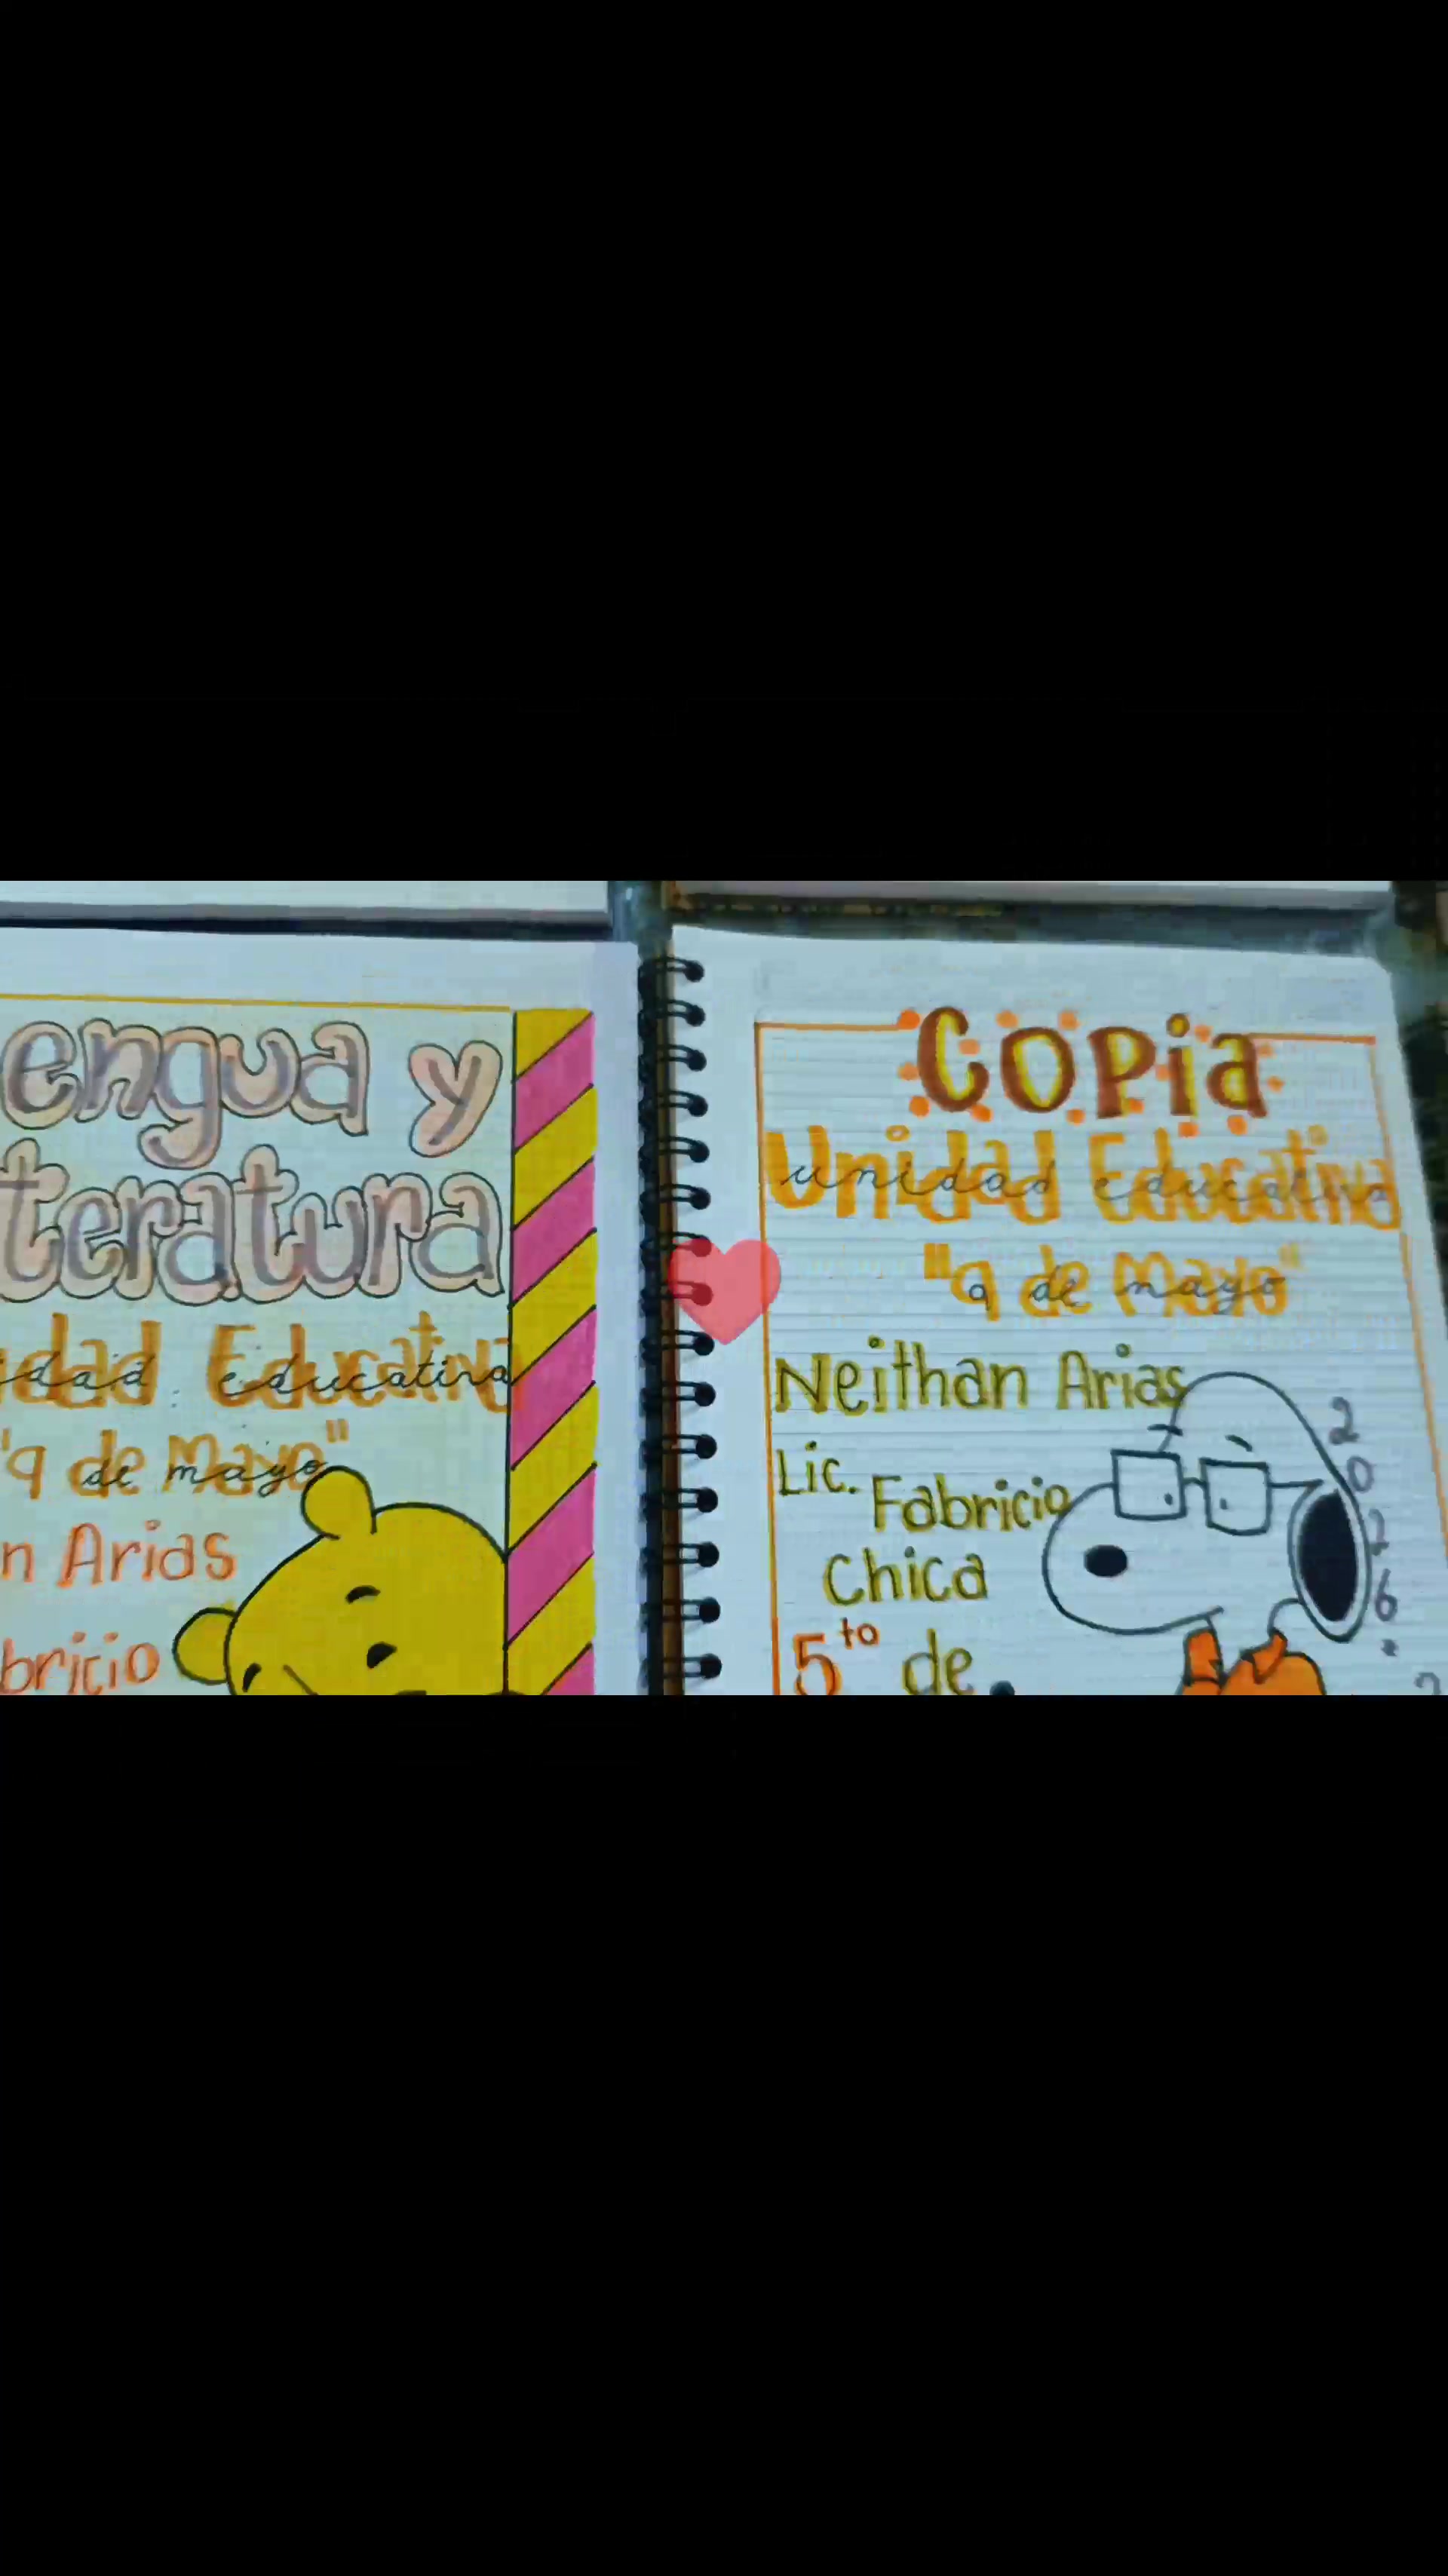 engua y
teratura
idad Educativa
idad educativa
"9 de Mayo"
de mayo
n Arias
bricio
Copia
Unidad Educativa
unidad educativa
"9 de Mayo"
9 de mayo
Neithan Arias
Lic. Fabricio
Chica
5to de
2
0
2
6